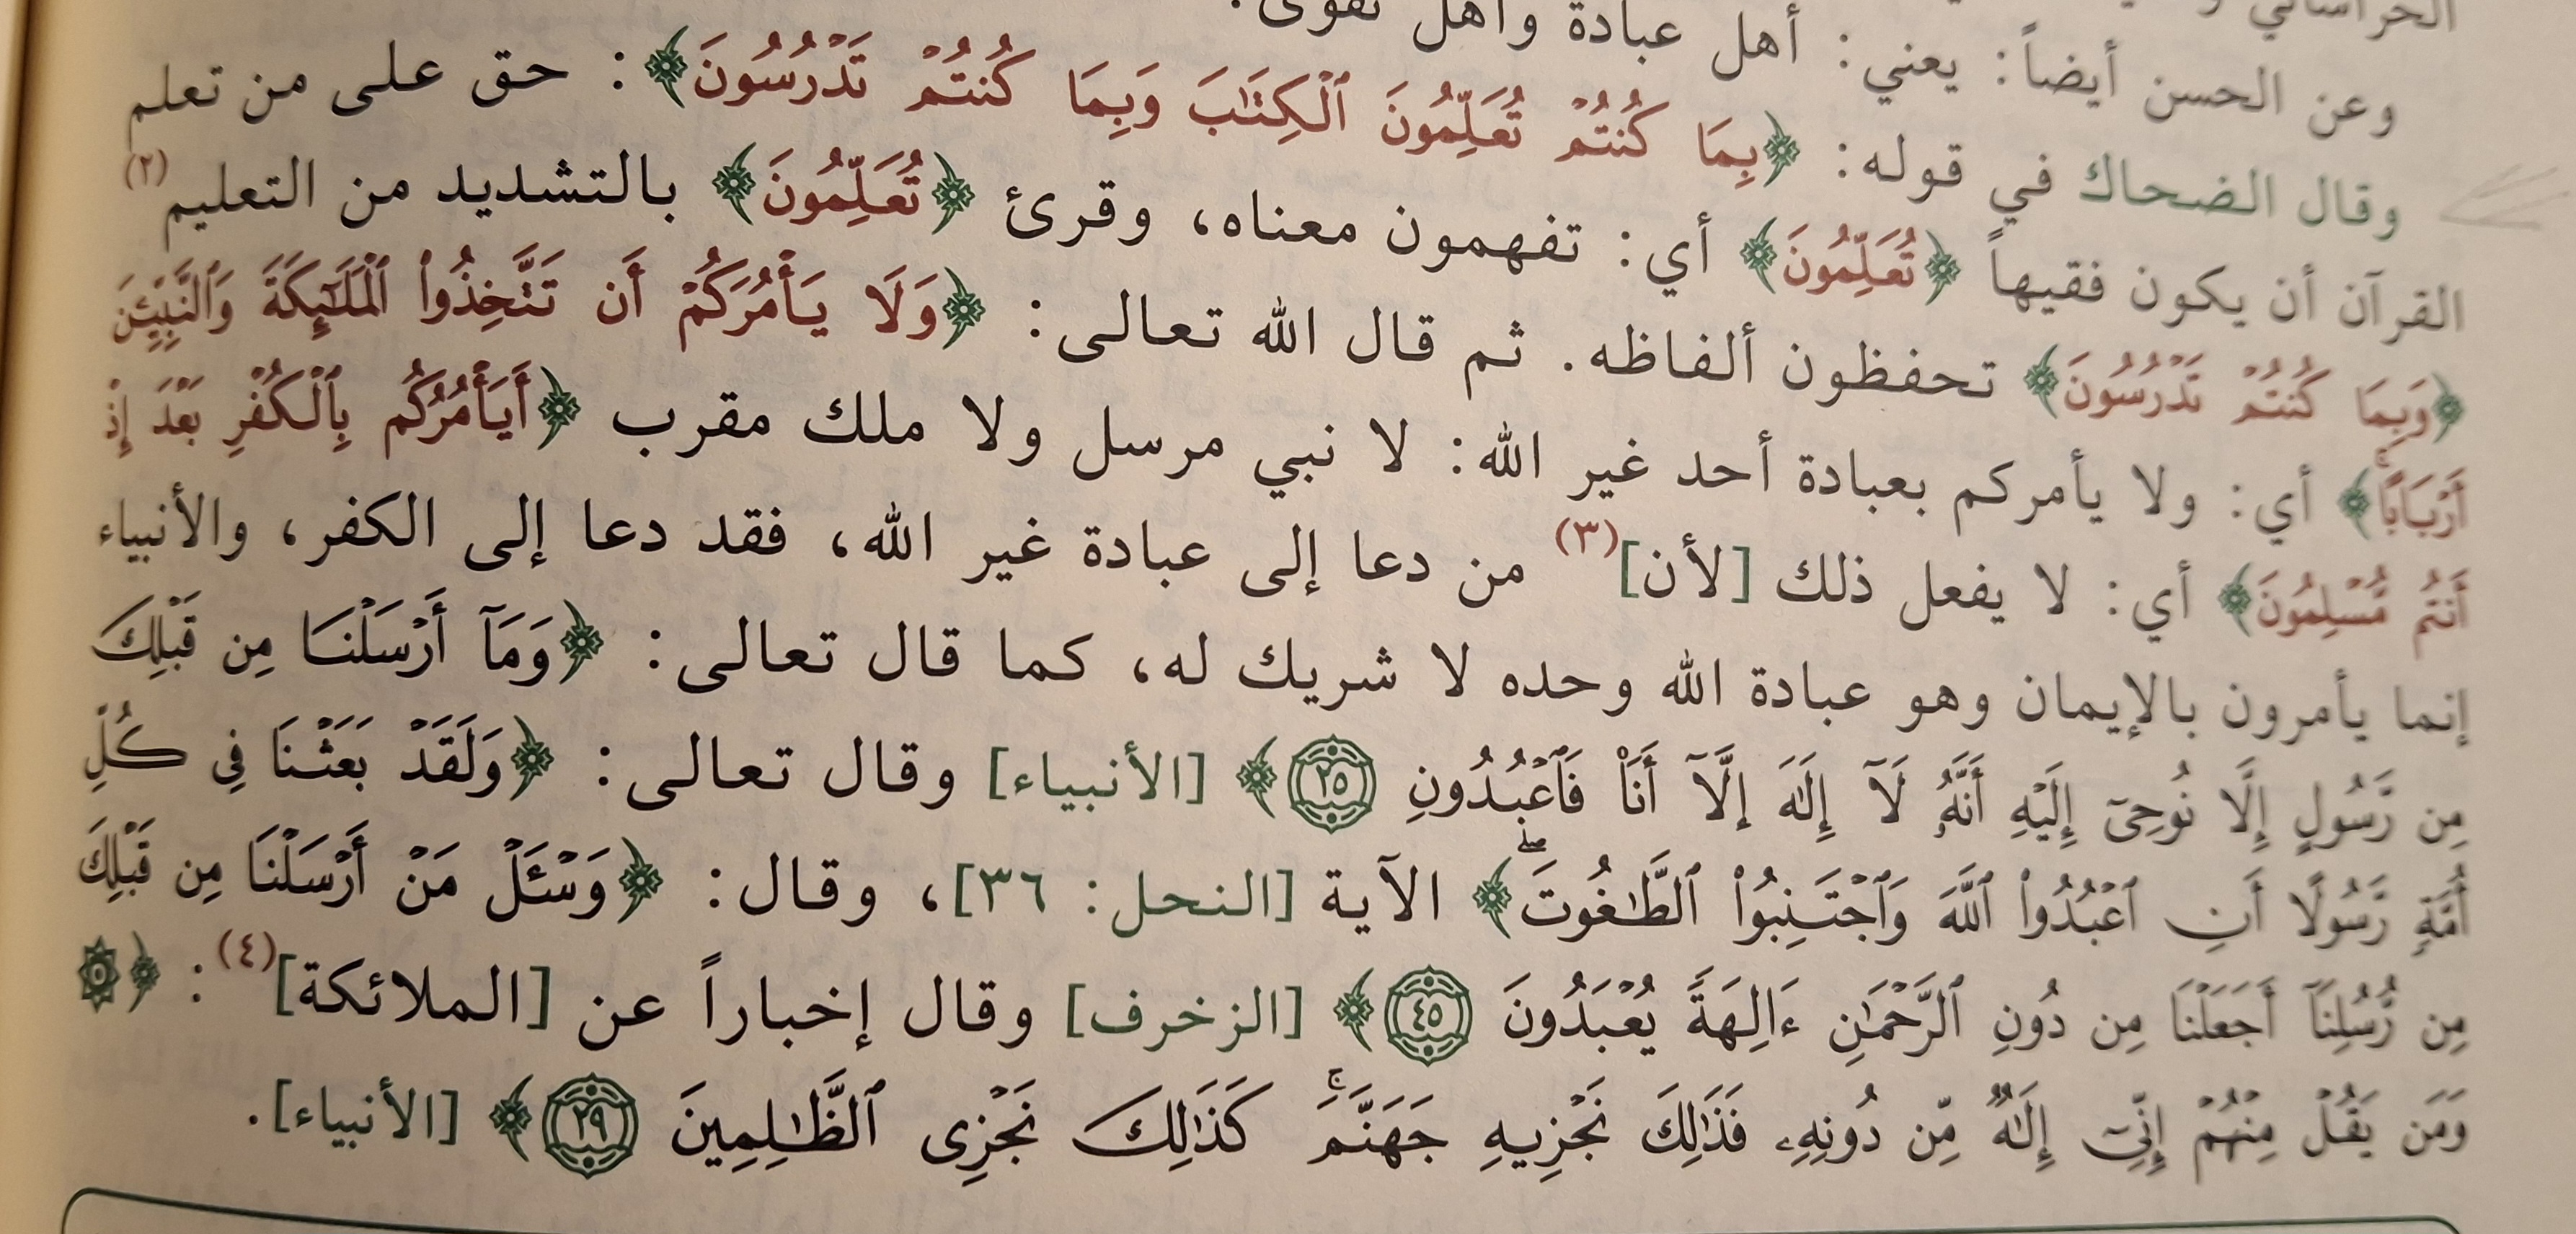 وعن الحسن أيضاً: يعني: أهل عبادة وأهل تقوى.
وقال الضحاك في قوله: ﴿بِمَا كُنتُمْ تُعَلِّمُونَ ٱلْكِتَٰبَ وَبِمَا كُنتُمْ تَدْرُسُونَ﴾: حق على من تعلم
القرآن أن يكون فقيهاً ﴿تُعَلِّمُونَ﴾ أي: تفهمون معناه، وقرئ ﴿تُعَلِّمُونَ﴾ بالتشديد من التعليم(٢)
﴿وَبِمَا كُنتُمْ تَدْرُسُونَ﴾ تحفظون ألفاظه. ثم قال الله تعالى: ﴿وَلَا يَأْمُرَكُمْ أَن تَتَّخِذُوا۟ ٱلْمَلَٰٓئِكَةَ وَٱلنَّبِيِّـۧنَ
أَرْبَابًا ۚ﴾ أي: ولا يأمركم بعبادة أحد غير الله: لا نبي مرسل ولا ملك مقرب ﴿أَيَأْمُرُكُم بِٱلْكُفْرِ بَعْدَ إِذْ
أَنتُم مُّسْلِمُونَ﴾ أي: لا يفعل ذلك [لأن](٣) من دعا إلى عبادة غير الله، فقد دعا إلى الكفر، والأنبياء
إنما يأمرون بالإيمان وهو عبادة الله وحده لا شريك له، كما قال تعالى: ﴿وَمَآ أَرْسَلْنَا مِن قَبْلِكَ
مِن رَّسُولٍ إِلَّا نُوحِىٓ إِلَيْهِ أَنَّهُۥ لَآ إِلَٰهَ إِلَّآ أَنَا۠ فَٱعْبُدُونِ ٢٥﴾ [الأنبياء] وقال تعالى: ﴿وَلَقَدْ بَعَثْنَا فِى كُلِّ
أُمَّةٍ رَّسُولًا أَنِ ٱعْبُدُوا۟ ٱللَّهَ وَٱجْتَنِبُوا۟ ٱلطَّٰغُوتَ ۖ﴾ الآية [النحل: ٣٦]، وقال: ﴿وَسْـَٔلْ مَنْ أَرْسَلْنَا مِن قَبْلِكَ
مِن رُّسُلِنَآ أَجَعَلْنَا مِن دُونِ ٱلرَّحْمَٰنِ ءَالِهَةً يُعْبَدُونَ ٤٥﴾ [الزخرف] وقال إخباراً عن [الملائكة](٤): ﴿۞
وَمَن يَقُلْ مِنْهُمْ إِنِّىٓ إِلَٰهٌ مِّن دُونِهِۦ فَذَٰلِكَ نَجْزِيهِ جَهَنَّمَ ۚ كَذَٰلِكَ نَجْزِى ٱلظَّٰلِمِينَ ٢٩﴾ [الأنبياء].